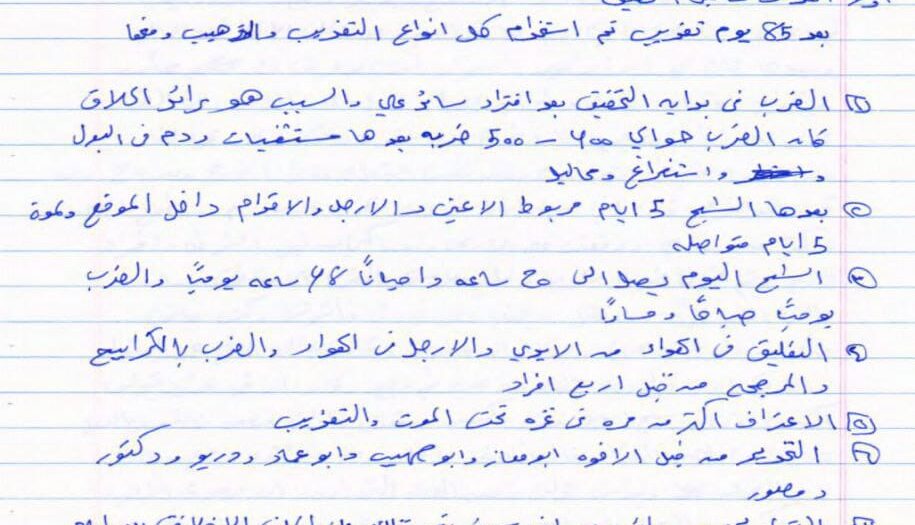 بعد 85 يوم تعذيب تم استخدام كل انواع التعذيب والترهيب ومنها
الضرب في بدايه التحقيق بعد افتراء سائر علي والسبب هو
كانه الضرب حوالي 400 – 500 ضربه بعدها مستشفيات ودم في البول
واستفراغ ومحاليل
بعدها الشبح 5 ايام مربوط الاعين والارجل والاقدام داخل الموقع ولمدة
5 ايام متواصله
الشبح اليوم يصل الى ساعه واحياناً ساعه يومياً والضرب
يومياً صباحاً ومساءاً
التعليق في الهواء من الايدي والارجل في الهواء والضرب بالكرابيج
والمرجحه من قبل اربع افراد
الاعتراف اكثر من مره في غزه تحت الموت والتعذيب
من قبل الاخوه ابو معاذ وابو صهيب وابو عماد ودكتور
ومصور